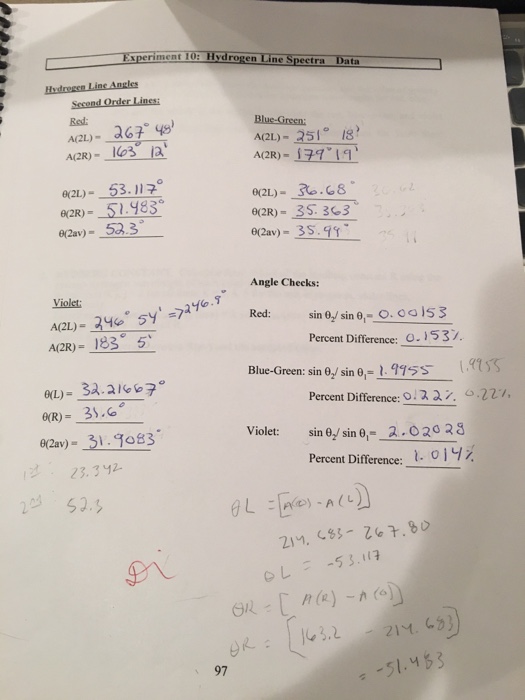 Experiment 10: Hydrogen Line Spectra Data
Hydrogen Line Angles
Second Order Lines:
Red:
A(2L) = 267° 48'
A(2R) = 163° 12'
θ(2L) = 53.117°
θ(2R) = 51.483°
θ(2av) = 52.3°
Blue-Green:
A(2L) = 251° 18'
A(2R) = 179° 19'
θ(2L) = 36.68°
θ(2R) = 35.363
θ(2av) = 35.99°
Violet:
A(2L) = 246° 54' => 246.9°
A(2R) = 183° 5'
θ(L) = 32.21667°
θ(R) = 31.6°
θ(2av) = 31.9083°
1st 23.342
2nd 52.3
Angle Checks:
Red: sin θ₂/ sin θ₁= 0.00153
Percent Difference: 0.153%
Blue-Green: sin θ₂/ sin θ₁= 1.9955 1.9955
Percent Difference: 0.22% 0.22%
Violet: sin θ₂/ sin θ₁= 2.02028
Percent Difference: 1.014%
θL = [A(0) - A(L)]
214.683 - 267.80
θL = -53.117
θR = [A(R) - A(0)]
θR = [163.2 - 214.683]
= -51.483
97